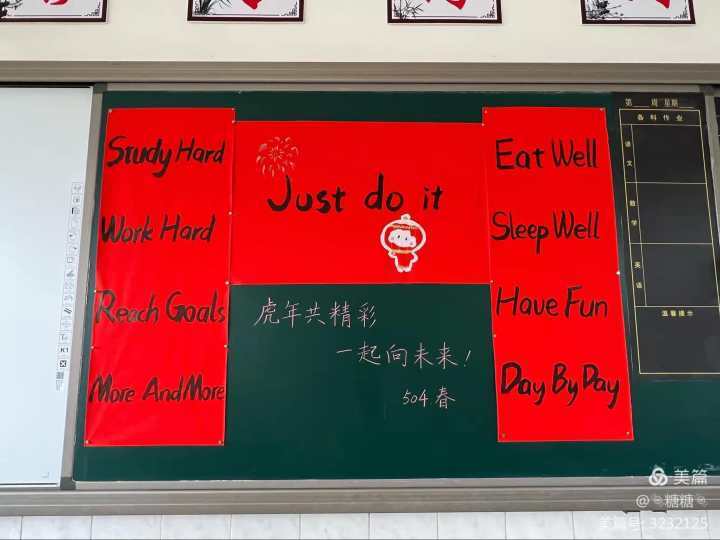 Just do it
Study Hard
Work Hard
Reach Goals
More And More
Eat Well
Sleep Well
Have Fun
Day By Day
虎年共精彩
一起向未来!
504.春
第 周 星期
各科作业
语文
数学
英语
温馨提示
K1
美篇
@糖糖
美篇号: 3232125